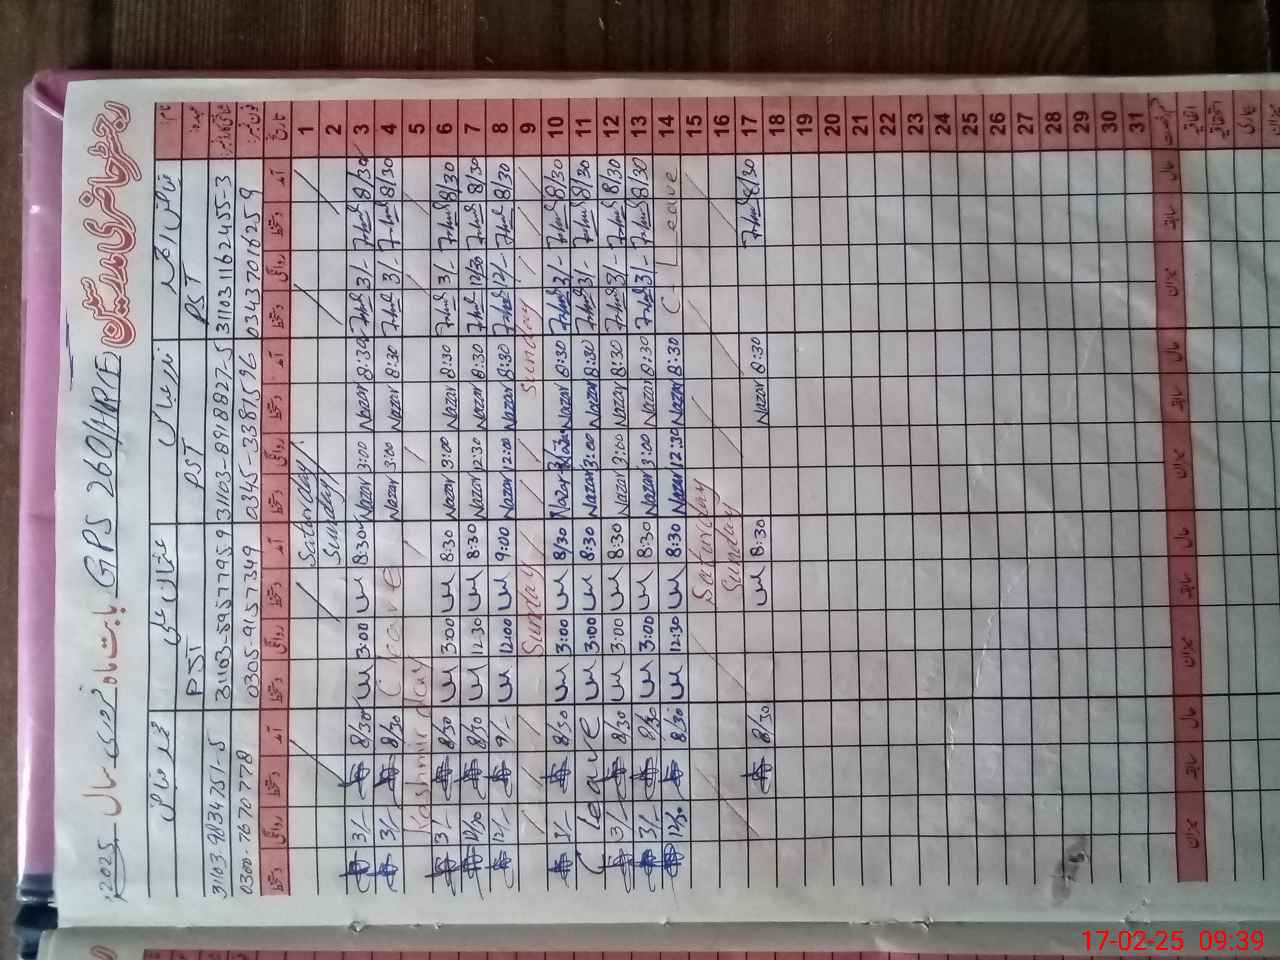 رجسٹر حاضری مدرسین GPS 260/HR/E بابت ماہ فروری سال 2025
نام نذر عباس عثمان علی محمد فیاض
عہدہ PST PST PST
شناختی کارڈ نمبر 311031162455-3 31103-8918827-5 31103-5957795-9 31103-9834751-5
فون نمبر 03437016259 0345-3381596 0305-9157349 0300-7670778
تاریخ آمد دستخط روانگی دستخط آمد دستخط روانگی دستخط آمد دستخط روانگی دستخط آمد دستخط روانگی دستخط
1 Saturday
2 Sunday
3 8/30 3/- 8:30 Nazar 3:00 Nazar 8:30 3:00 8/30 3/-
4 8/30 3/- 8:30 Nazar 3:00 Nazar C Leave 8/30 3/-
5 Kashmir day
6 8/30 3/- 8:30 Nazar 3:00 Nazar 8:30 3:00 8/30 3/-
7 8/30 12/30 8:30 Nazar 12:30 Nazar 8:30 12:30 8/30 12/30
8 8/30 12/- 8:30 Nazar 12:00 Nazar 9:00 12:00 9/- 12/-
9 Sunday Sunday
10 8/30 3/- 8:30 Nazar Nazar 8/30 3:00 8/30 3/-
11 8/30 3/- 8:30 Nazar 3:00 Nazar 8:30 3:00 Leave
12 8/30 3/- 8:30 Nazar 3:00 Nazar 8:30 3:00 8/30 3/-
13 8/30 3/- 8:30 Nazar 3:00 Nazar 8:30 3:00 8/30 3/-
14 C-Leave 8:30 Nazar 12:30 Nazar 8:30 12:30 8/30 12/30
15 Saturday
16 Sunday
17 8/30 8:30 Nazar 8:30 8/30
18
19
20
21
22
23
24
25
26
27
28
29
30
31
حال سابقہ میزان حال سابقہ میزان حال سابقہ میزان حال سابقہ میزان
اتفاقیہ
استحقاقیہ
بیماری
میزان
17-02-25 09:39